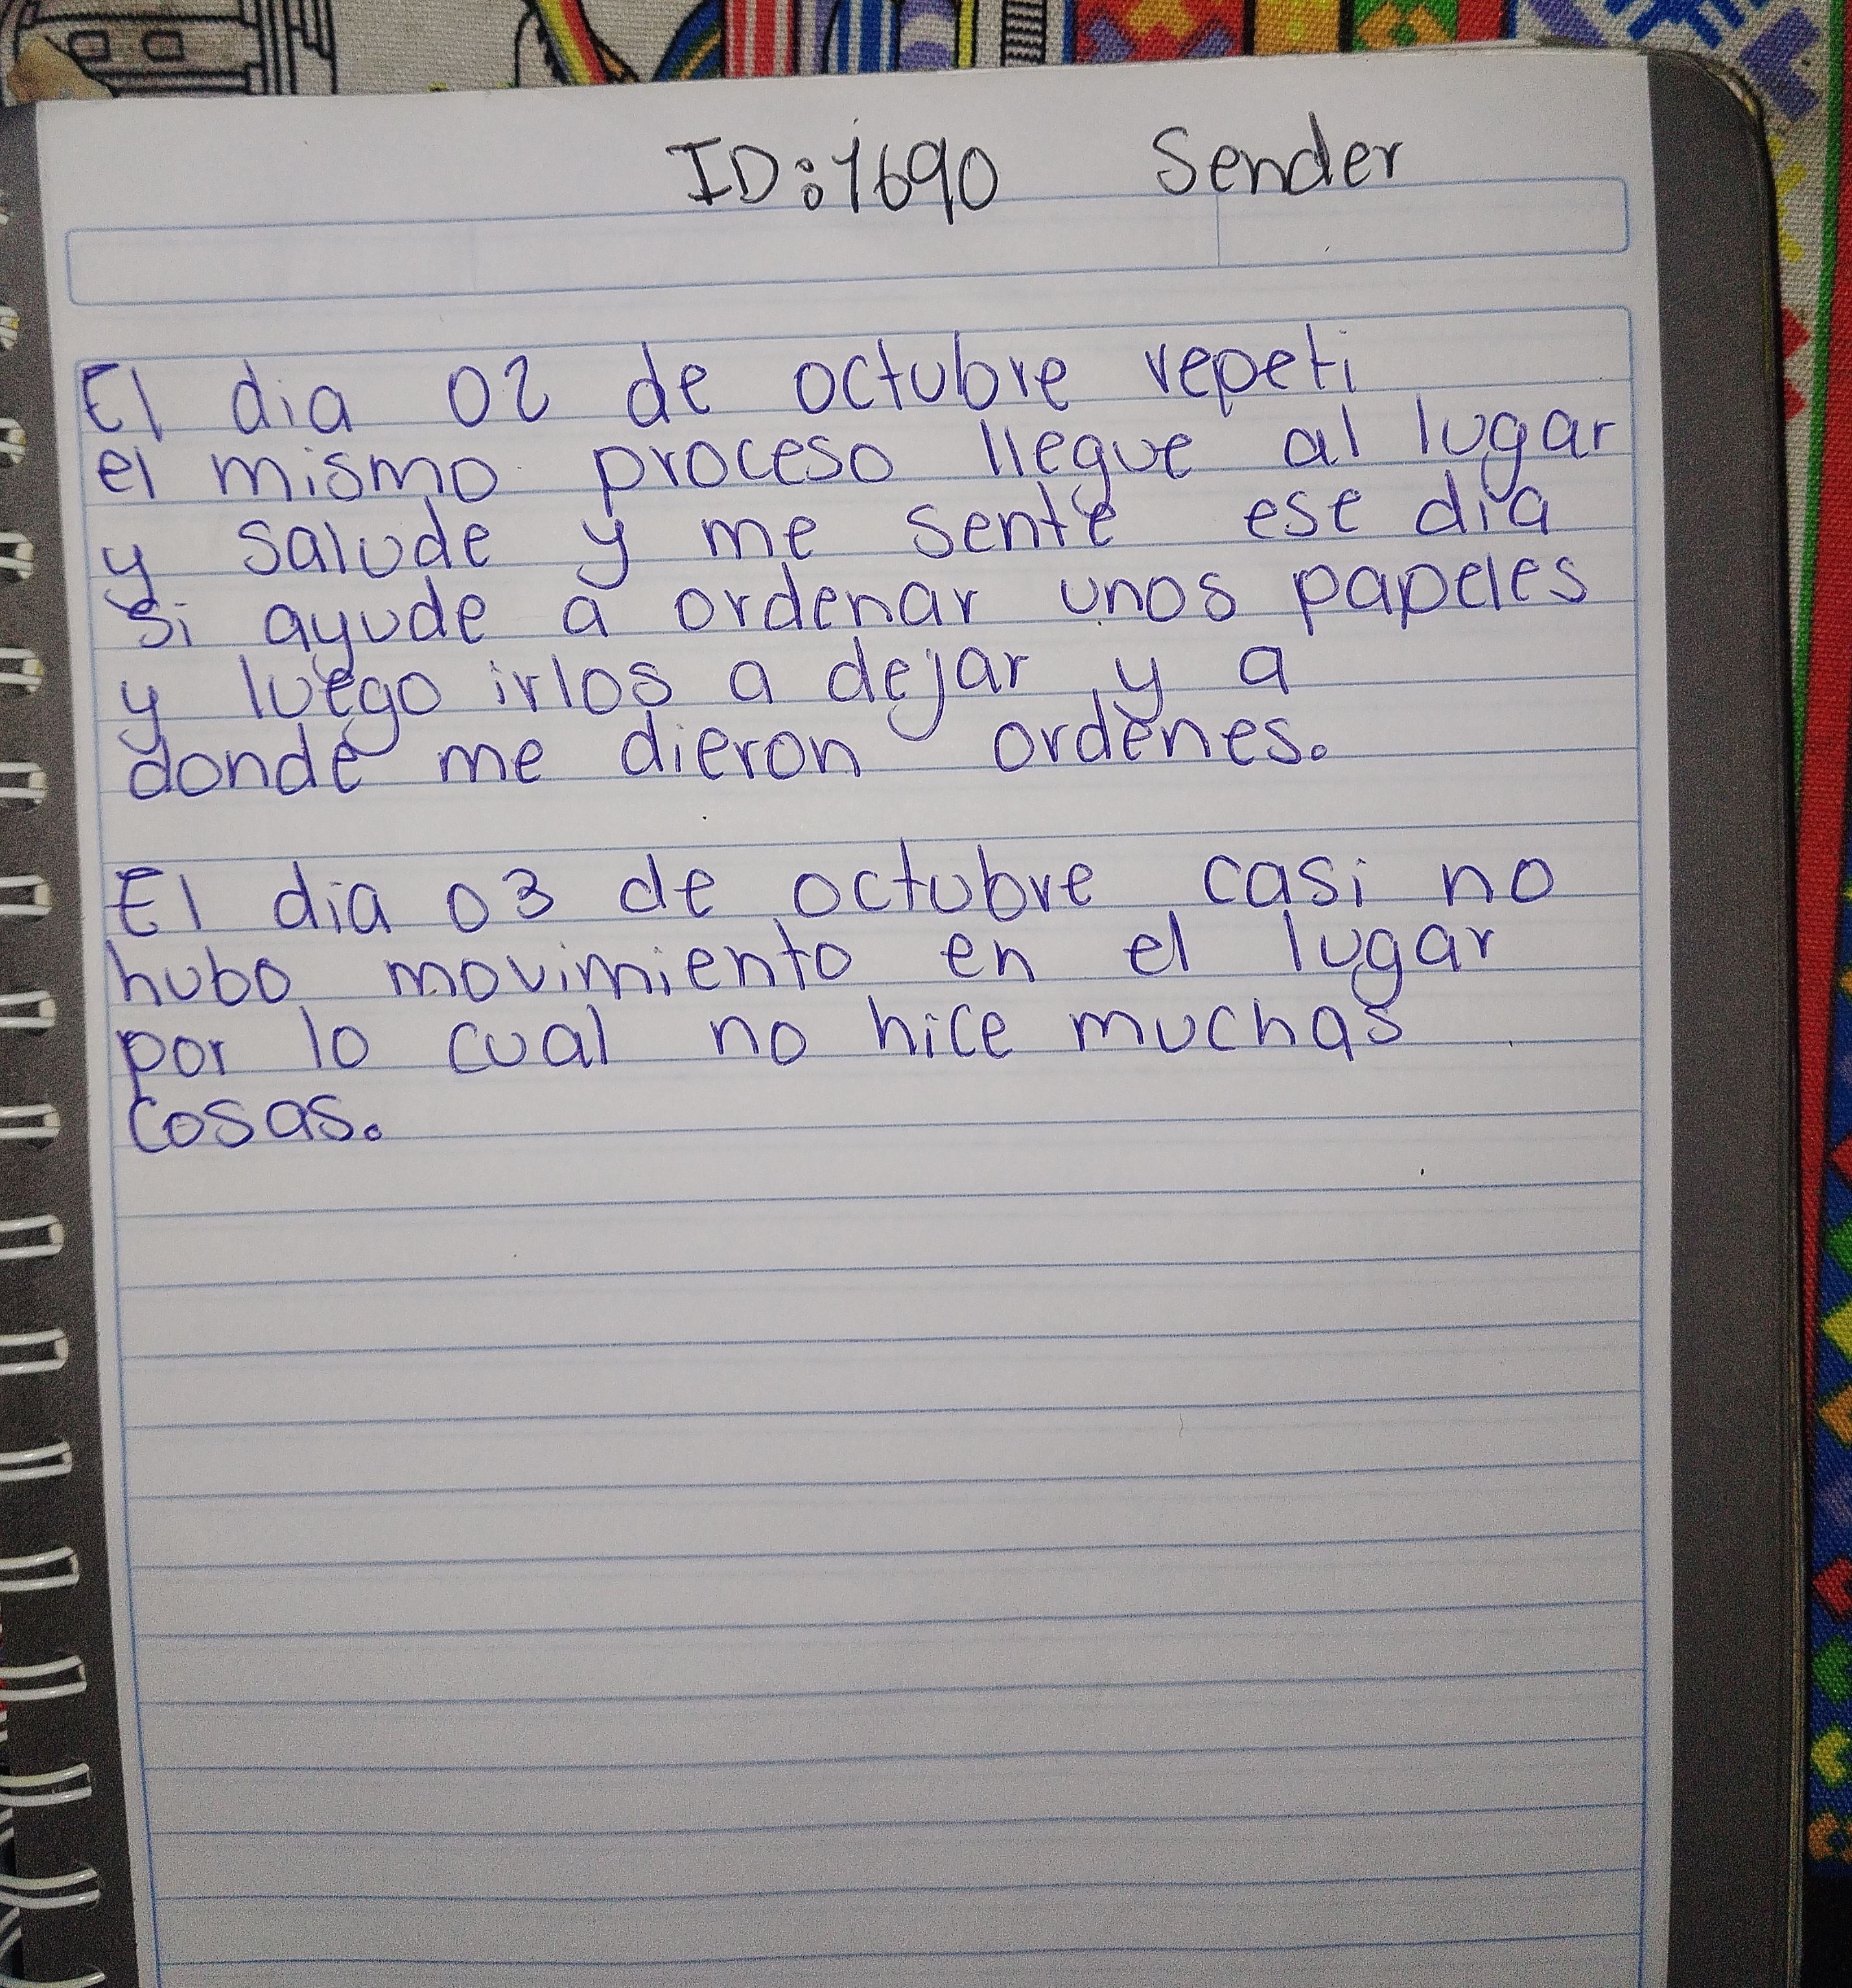 ID:1690 Sender
El dia 02 de octubre repeti
el mismo proceso llegue al lugar
y salude y me sente ese dia
si ayude a ordenar unos papeles
y luego irlos a dejar y a
donde me dieron ordenes.
El dia 03 de octubre casi no
hubo movimiento en el lugar
por lo cual no hice muchas
cosas.